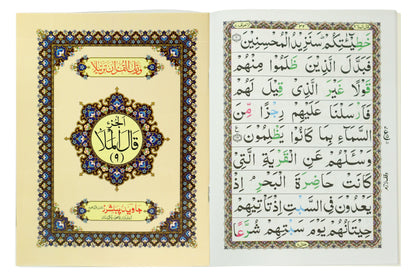 وَرَتِّلِ الْقُرْاٰنَ تَرْتِيْلًا
الجزء
قَالَ الْمَلَأُ
(٩)
خَطِيْٓـٰٔتِكُمْ سَنَزِيْدُ الْمُحْسِنِيْنَ
فَبَدَّلَ الَّذِيْنَ ظَلَمُوْا مِنْهُمْ
قَوْلًا غَيْرَ الَّذِيْ قِيْلَ لَهُمْ
فَاَرْسَلْنَا عَلَيْهِمْ رِجْزًا مِّنَ
السَّمَآءِ بِمَا كَانُوْا يَظْلِمُوْنَ
وَسْـَٔلْهُمْ عَنِ الْقَرْيَةِ الَّتِيْ
كَانَتْ حَاضِرَةَ الْبَحْرِ اِذْ
يَعْدُوْنَ فِي السَّبْتِ اِذْ تَاْتِيْهِمْ
حِيْتَانُهُمْ يَوْمَ سَبْتِهِمْ شُرَّعًا